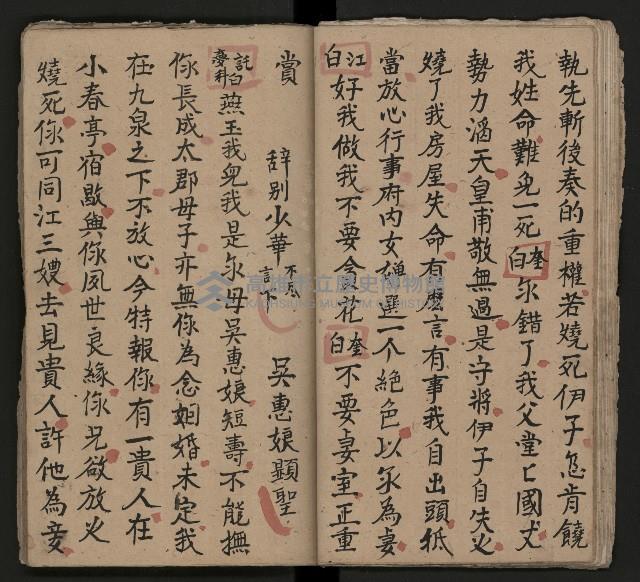 執先斬後奏的重權若燒死伊子怎肯饒
我姓命難免一死 奎白 尔錯了我父堂〻國丈
勢力滔天皇甫敬無過是守將伊子自失火
燒了我房屋失命有麽言有事我自出頭抵
當放心行事府內女婢選一个絕色以尔為妻
江白 好我做我不要貪花 奎白 不要妻室正重
賞
辞別少華 不言下
吳惠娘顯聖
託夢白科 燕玉我兒我是尔母吳惠娘短壽不能撫
你長成太郡母子亦無你為念姻婚未定我
在九泉之下不放心今特報你有一貴人在
小春亭宿歇與你夙世良緣你兄欲放火
燒死你可同江三嫂去見貴人許他為妾
高雄市立歷史博物館
KAOHSIUNG MUSEUM OF HISTORY